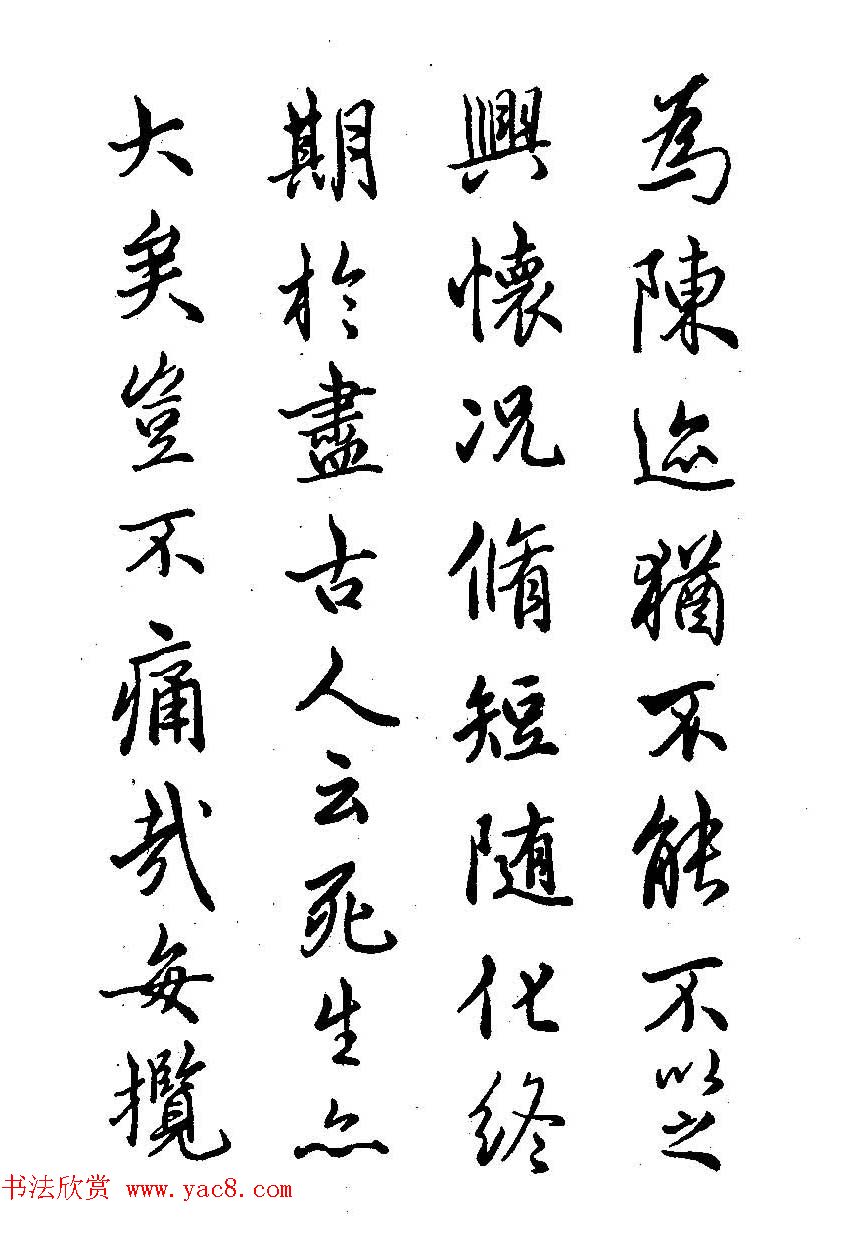 為陳迹猶不能不以之
興懷况脩短随化終
期於盡古人云死生亦
大矣豈不痛哉每攬
书法欣赏 www.yac8.com